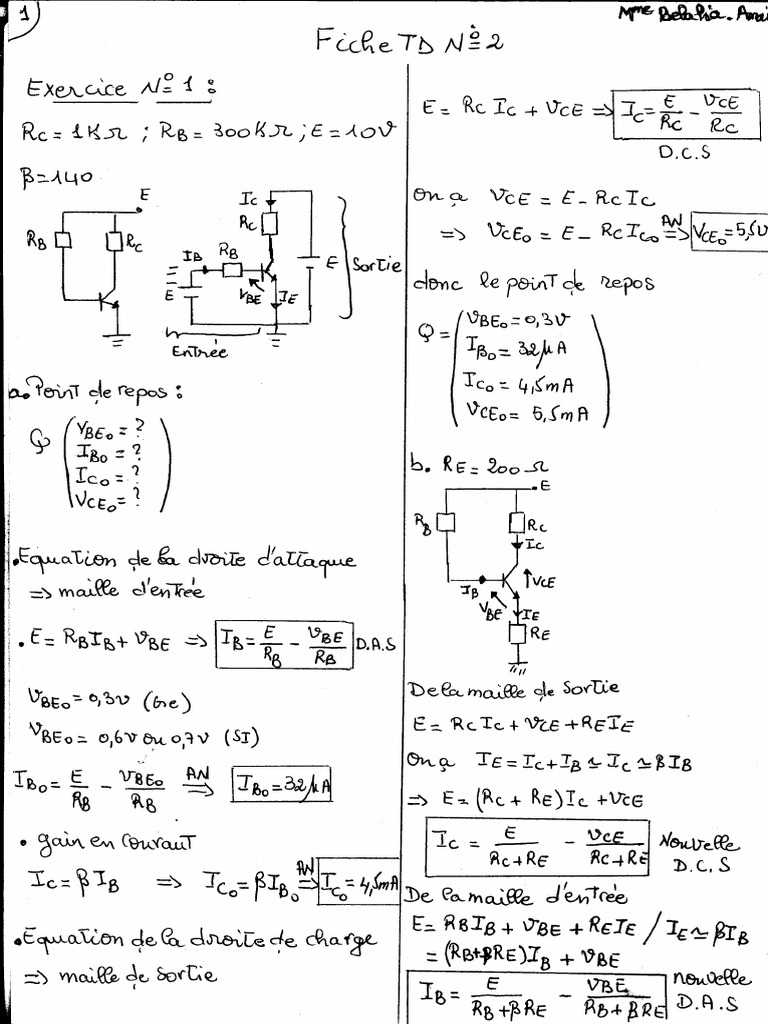 1
Mme Belahia. Amai
Fiche TD N°2
Exercice N°1 :
RC = 1KΩ ; RB = 300KΩ ; E = 10V
β = 140
E
RB
RC
IC
RC
IB
RB
E
VBE
IE
E
Sortie
Entrée
a. Point de repos :
Q
VBE0 = ?
IB0 = ?
IC0 = ?
VCE0 = ?
. Equation de la droite d'attaque
=> maille d'entrée
. E = RB IB + VBE => IB = E/RB - VBE/RB D.A.S
VBE0 = 0,3V (Ge)
VBE0 = 0,6V ou 0,7V (SI)
IB0 = E/RB - VBE0/RB AN => IB0 = 32µA
. gain en courant
IC = β IB => IC0 = β IB0 AN => IC0 = 4,5mA
. Equation de la droite de charge
=> maille de sortie
E = RC IC + VCE => IC = E/RC - VCE/RC
D.C.S
on a VCE = E - RC IC
=> VCE0 = E - RC IC0 AN => VCE0 = 5,5V
donc le point de repos
Q =
VBE0 = 0,3V
IB0 = 32µA
IC0 = 4,5mA
VCE0 = 5,5mA
b. RE = 200Ω
E
RB
RC
IC
IB
VCE
VBE
IE
RE
De la maille de sortie
E = RC IC + VCE + RE IE
On a IE = IC + IB ≃ IC ≃ β IB
=> E = (RC + RE) IC + VCE
IC = E/(RC + RE) - VCE/(RC + RE) Nouvelle D.C.S
De la maille d'entrée
E = RB IB + VBE + RE IE / IE ≃ β IB
= (RB + βRE) IB + VBE
IB = E/(RB + βRE) - VBE/(RB + βRE) nouvelle D.A.S